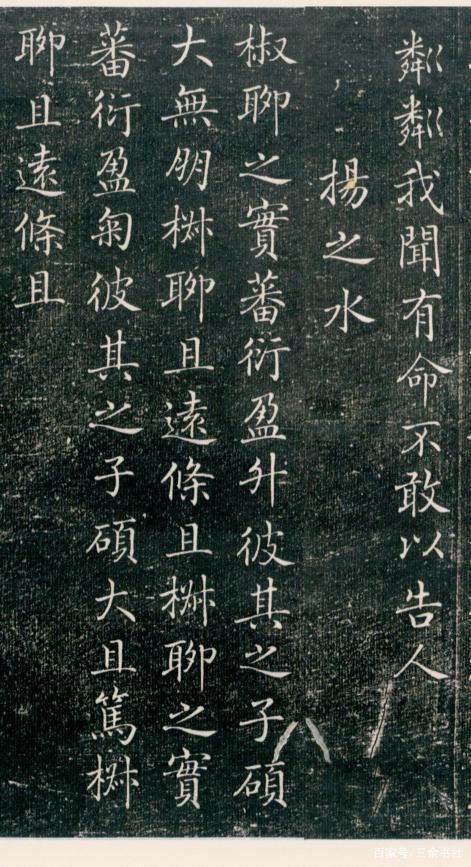 粼粼我聞有命不敢以告人
揚之水
椒聊之實蕃衍盈升彼其之子碩
大無朋椒聊且遠條且椒聊之實
蕃衍盈匊彼其之子碩大且篤椒
聊且遠條且
百家号/三余书社